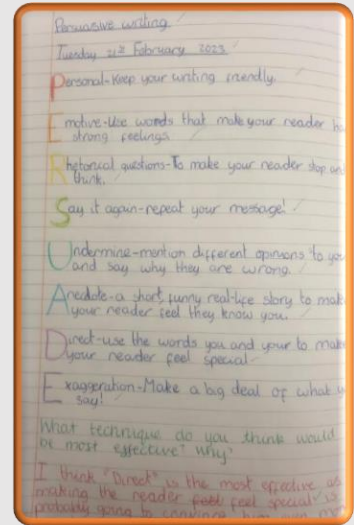 Persuasive writing.
Tuesday 21st February 2023
Personal-Keep your writing friendly.
Emotive-Use words that make your reader ha
strong feelings.
Rhetorical questions-To make your reader stop and
think.
Say it again-repeat your message!
Undermine-mention different opinions to you
and say why they are wrong.
Anecdote-a short, funny real-life story to make
your reader feel they know you.
Direct-use the words you and your to make
your reader feel special
Exaggeration-Make a big deal of what y
say!
What technique do you think would
be most effective? Why?
I think "Direct" is the most effective as
making the reader feel feel special is
probably going to convince